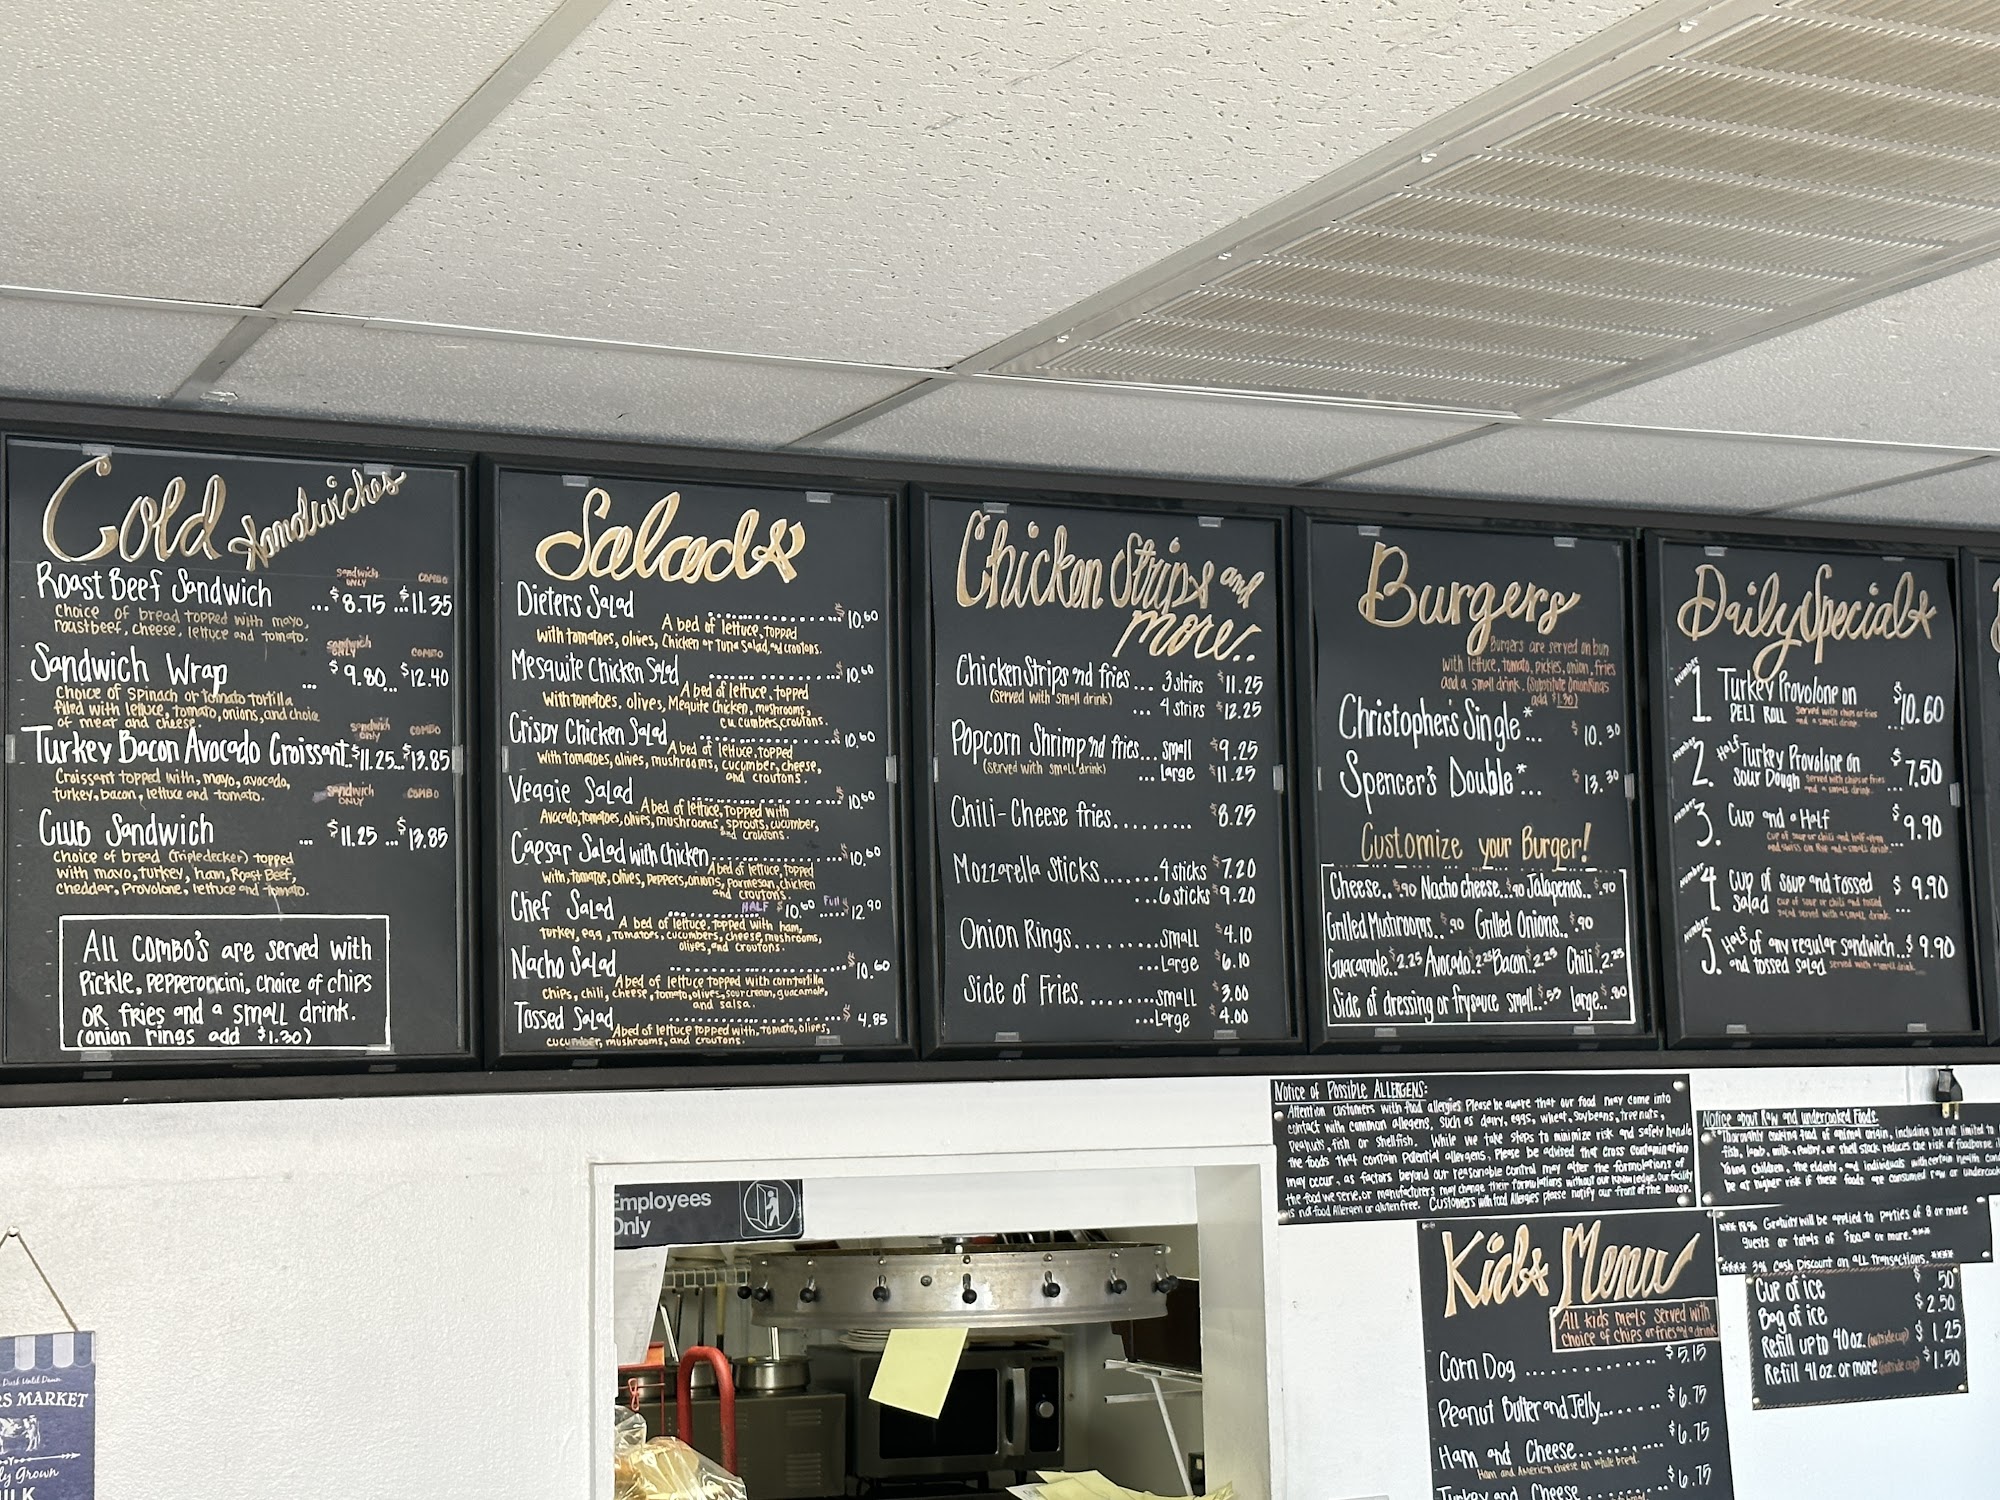 Cold Sandwiches
sandwich only COMBO
Roast Beef Sandwich ...$8.75 ...$11.35
choice of bread topped with mayo,
roast beef, cheese, lettuce and tomato.
sandwich only COMBO
Sandwich Wrap ... $9.80... $12.40
choice of spinach or tomato tortilla
filled with lettuce, tomato, onions, and choice
of meat and cheese.
sandwich only COMBO
Turkey Bacon Avocado Croissant..$11.25...$13.85
Croissant topped with, mayo, avocado,
turkey, bacon, lettuce and tomato.
sandwich ONLY COMBO
Club Sandwich ... $11.25 ...$13.85
choice of bread (Tripledecker) topped
with mayo, turkey, ham, Roast Beef,
cheddar, Provolone, lettuce and tomato.
All COMBO'S are served with
Pickle, pepperoncini, choice of chips
OR fries and a small drink.
(onion rings add $1.30)
Salads
Dieters Salad ................ $10.60
A bed of lettuce, topped
with tomatoes, olives, Chicken or Tuna Salad, and croutons.
Mesquite Chicken Salad ................ $10.60
A bed of lettuce, topped
with tomatoes, olives, Mequite chicken, mushrooms,
cucumbers, croutons.
Crispy Chicken Salad ................ $10.60
A bed of lettuce, topped
with tomatoes, olives, mushrooms, cucumber, cheese,
and croutons.
Veggie Salad ................ $10.60
A bed of lettuce, topped with
Avocado, tomatoes, olives, mushrooms, sprouts, cucumber,
and croutons.
Caesar Salad with Chicken ................ $10.60
A bed of lettuce, topped
with, tomatoe, olives, peppers, onions, parmesan, chicken
and croutons.
Chef Salad ............ HALF $10.60 ..... Full $12.90
A bed of lettuce, topped with ham,
turkey, egg, tomatoes, cucumbers, cheese, mushrooms,
olives, and croutons.
Nacho Salad ................ $10.60
A bed of lettuce topped with corn tortilla
chips, chili, cheese, tomato, olives, sour cream, guacamole,
and salsa.
Tossed Salad ................ $4.85
A bed of lettuce topped with, tomato, olives,
cucumber, mushrooms, and croutons.
Chicken Strips and
more..
Chicken Strips and fries... 3 strips $11.25
(served with small drink) ... 4 strips $12.25
Popcorn Shrimp and fries... small $9.25
(served with small drink) ... large $11.25
Chili-Cheese fries......... $8.25
Mozzarella Sticks.......4 sticks $7.20
...6 sticks $9.20
Onion Rings.........small $4.10
...Large $6.10
Side of Fries.........small $3.00
...Large $4.00
Burgers
Burgers are served on bun
with lettuce, tomato, pickles, onion, fries
and a small drink. (Substitute Onion Rings
add $1.30)
Christopher's Single*... $10.30
Spencer's Double*... $13.30
Customize your Burger!
Cheese..$.90 Nacho cheese..$.90 Jalapenos..$.90
Grilled Mushrooms..$.90 Grilled Onions..$.90
Guacamole..$2.25 Avocado..$2.25 Bacon..$2.25 Chili..$2.25
Side of dressing or frysauce small..$.55 large..$.80
Daily Specials
Number 1. Turkey Provolone on
DELI ROLL served with chips or fries and a small drink. $10.60
Number 2. Half Turkey Provolone on
Sour Dough served with chips or fries and a small drink. $7.50
Number 3. Cup and a Half $9.90
Number 4. Cup of soup and tossed
salad $9.90
cup of soup or chili and tossed
salad served with a small drink.
Number 5. Half of any regular sandwich.. $9.90
and tossed salad served with a small drink.
Notice of Possible ALLERGENS:
Attention customers with food allergies Please be aware that our food may come into
contact with common allergens, such as dairy, eggs, wheat, soybeans, tree nuts,
Peanuts, fish or shellfish. While we take steps to minimize risk and safely handle
the foods that contain Potential allergens, Please be advised that cross contamination
may occur, as factors beyond our reasonable control may alter the formulations of
the food we serve, or manufacturers may change their formulations without our knowledge. Our facility
is not food Allergen or gluten free. Customers with food Allergies please notify our front of the house.
Notice about Raw and undercooked Foods.
*Thoroughly cooking food of animal origin, including but not limited to
fish, lamb, milk, poultry, or shell stock reduces the risk of foodborne
Young children, the elderly, and individuals with certain health
be at higher risk if these foods are consumed raw or
*** 18% Gratuity will be applied to parties of 8 or more
guests or totals of $100.00 or more. ***
**** 3% Cash Discount on ALL Transactions. ****
Cup of ice $.50
Bag of ice $2.50
Refill up to 40oz. (outside cup) $1.25
Refill 41 oz. or more (outside cup) $1.50
Employees
Only
Kids Menu
All kids meals served with
choice of chips or fries and a drink
Corn Dog .................. $5.15
Peanut Butter and Jelly....... $6.75
Ham and Cheese.......... $6.75
Ham and American cheese on white bread.
Turkey and Cheese ........ $6.75
Dusk Until Dawn
RS MARKET
ly Grown
ILK